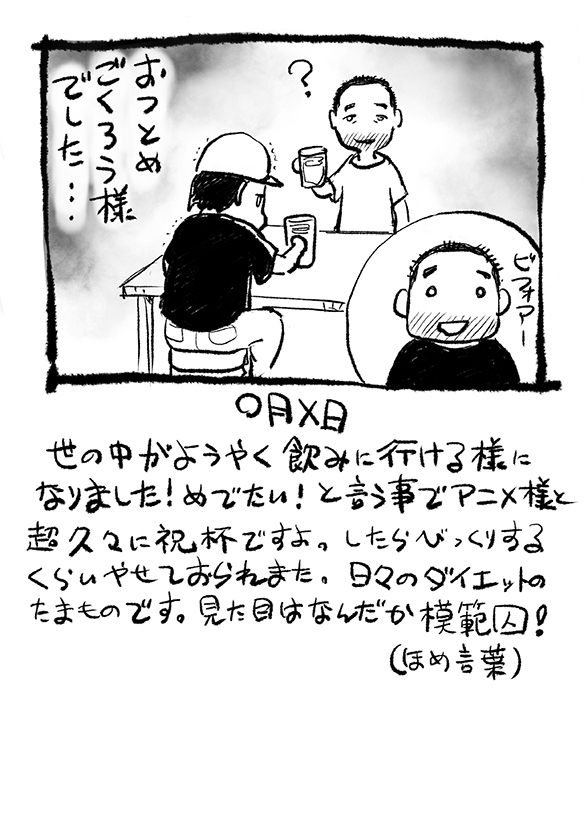 おつとめ
ごくろう様
でした・・・
?
ビフォアー
〇月X日
世の中がようやく飲みに行ける様に
なりました!めでたい!と言う事でアニメ様と
超久々に祝杯ですよ。したらびっくりする
くらいやせておられまた。日々のダイエットの
たまものです。見た目はなんだか模範囚!
(ほめ言葉)